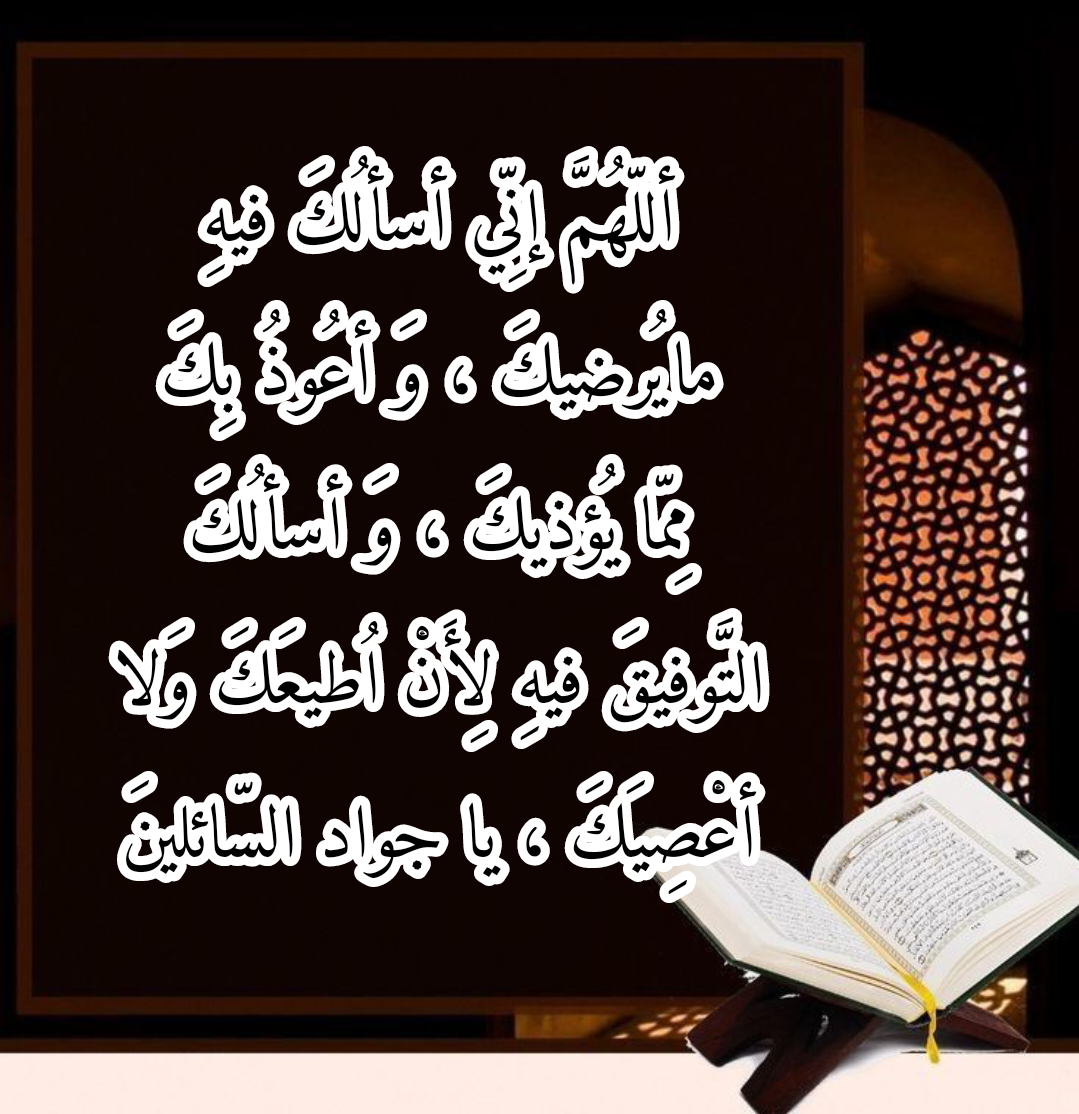 أللّهُمَّ إنِّي أسألُكَ فيهِ
مايُرضيكَ ، وَ أعُوذُ بِكَ
مِمّا يُؤذيكَ ، وَ أسألُكَ
التَّوفيقَ فيهِ لِأَنْ اُطيعَكَ وَلا
أعْصِيَكَ ، يا جواد السّائلينَ